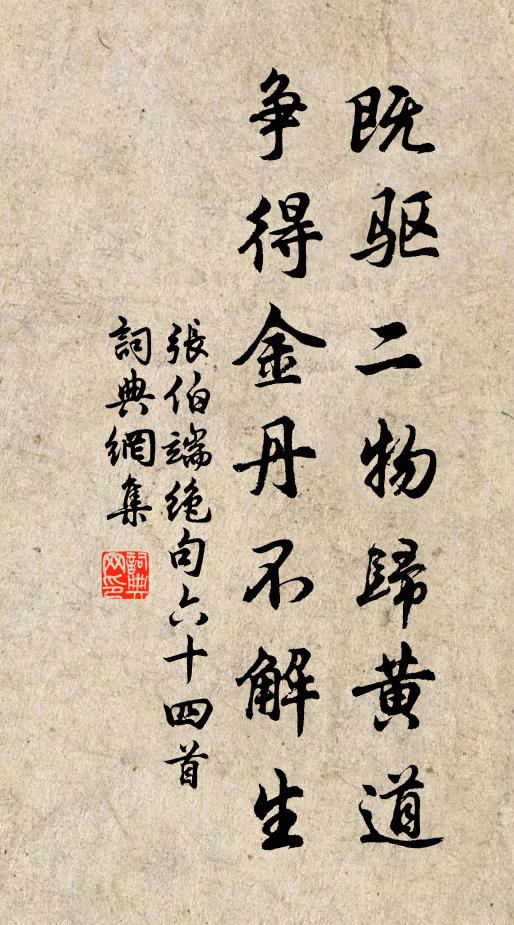 既驱二物歸黄道
争得金丹不解生
張伯端绝句六十四首
詞典網集
詞典
网印